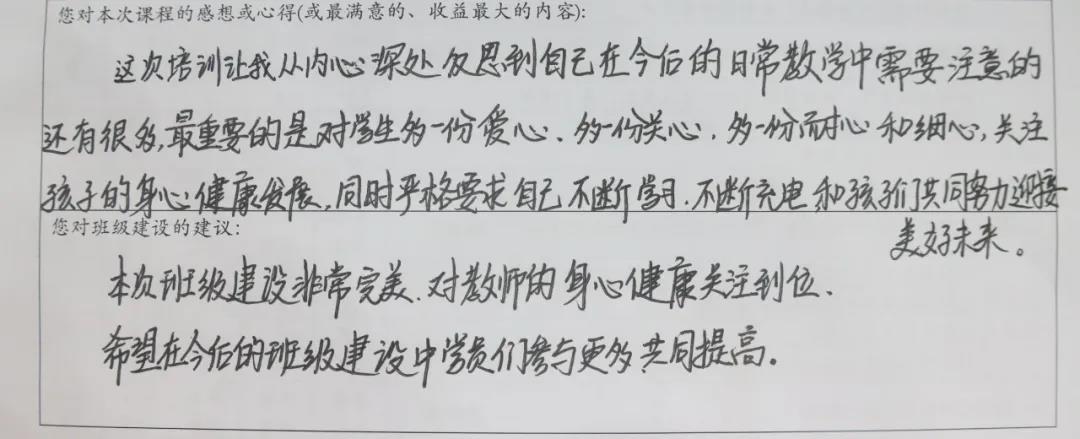 您对本次课程的感想或心得(或最满意的、收益最大的内容):
这次培训让我从内心深处反思到自己在今后的日常教学中需要注意的
还有很多,最重要的是对学生多一份爱心、多一份关心,多一份耐心和细心,关注
孩子的身心健康发展,同时严格要求自己不断学习.不断充电和孩子们共同努力迎接
美好未来。
您对班级建设的建议:
本次班级建设非常完美.对教师的身心健康关注到位.
希望在今后的班级建设中学员们参与更多共同提高。